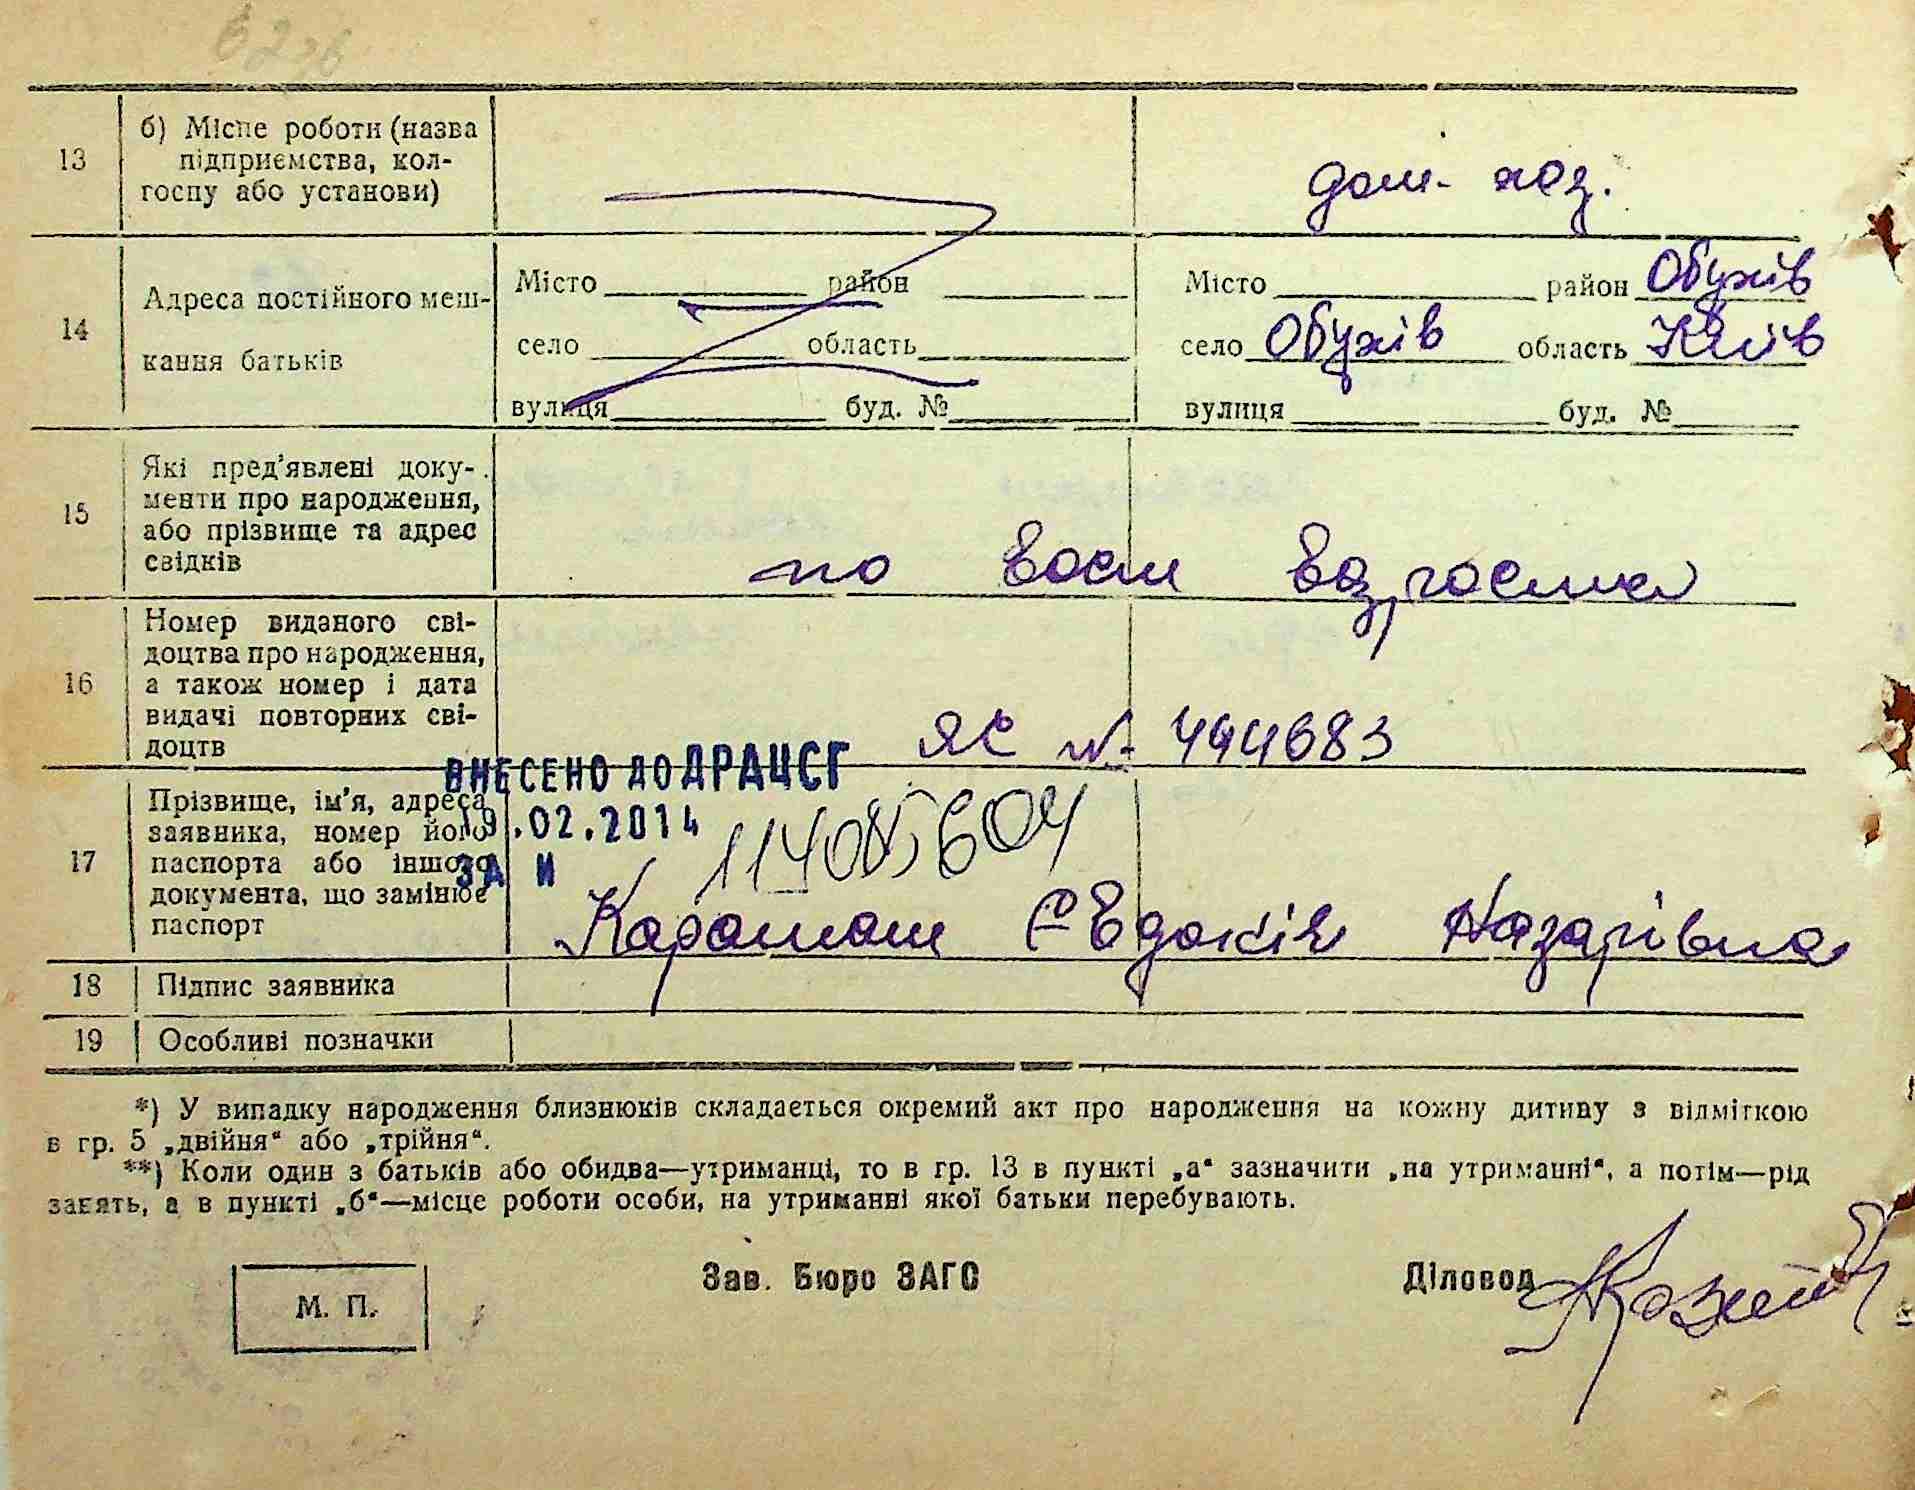 13
б) Місце роботи (назва
підприємства, кол-
госпу або установи)
дом. хоз.
14
Адреса постійного меш-
кання батьків
Місто район
село область
вулиця буд. №
Місто район Обухів
село Обухів область Київ
вулиця буд. №
15
Які пред'явлені доку-
менти про народження,
або прізвище та адрес
свідків
по возроста
16
Номер виданого сві-
доцтва про народження,
а також номер і дата
видачі повторних сві-
доцтв
ЯС № 494683
ВНЕСЕНО ДО ДРАЦСГ
19.02.2014
ЗА №
17
Прізвище, ім'я, адреса
заявника, номер його
паспорта або іншого
документа, що замінює
паспорт
Євдокія Назарівна
18 Підпис заявника
19 Особливі позначки
*) У випадку народження близнюків складається окремий акт про народження на кожну дитину з відміткою
в гр. 5 „двійня“ або „трійня“.
**) Коли один з батьків або обидва—утриманці, то в гр. 13 в пункті „а“ зазначити „на утриманні“, а потім—рід
занять, а в пункті „б“—місце роботи особи, на утриманні якої батьки перебувають.
М. П.
Зав. Бюро ЗАГС
Діловод